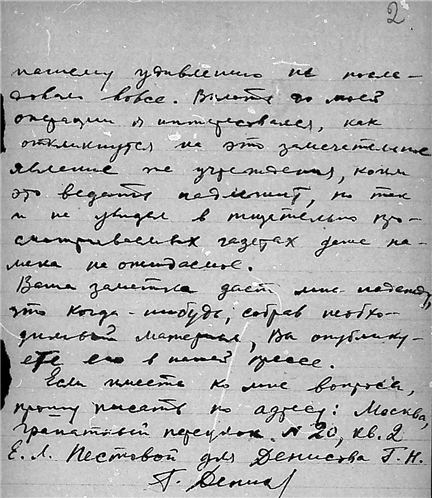 2
нашему удивлению не после-
довало вовсе. Вплоть до моей
операции я интересовался, как
откликнутся на это замечательное
явление те учреждения, коим
это ведать надлежит, но так
и не увидал в тщательно про-
сматриваемых газетах даже на-
мека на ожидаемое.
Ваша заметка дает мне надежду,
что когда-нибудь, собрав необхо-
димый материал, Вы опублику-
ете его в нашей прессе.
Если имеете ко мне вопросы,
прошу писать по адресу: Москва,
Гранатный переулок. № 20, кв. 2
Е. Л. Пестовой для Денисова Г. Н.
Г. Денис